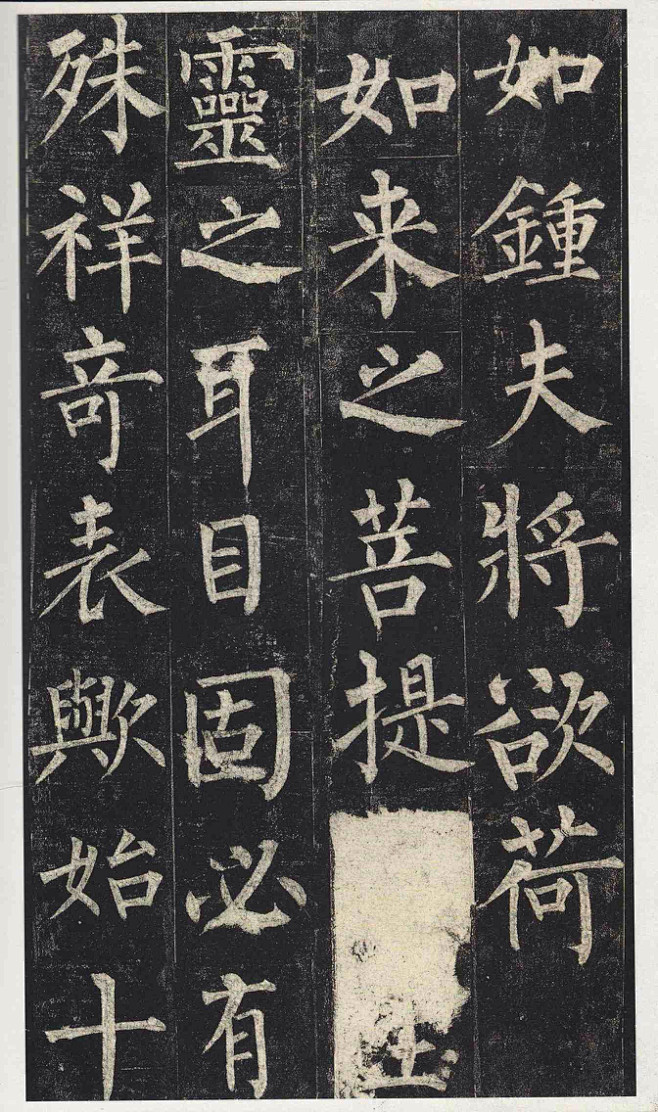 如鍾夫將欲荷
如来之菩提
靈之耳目固必有
殊祥奇表歟始十